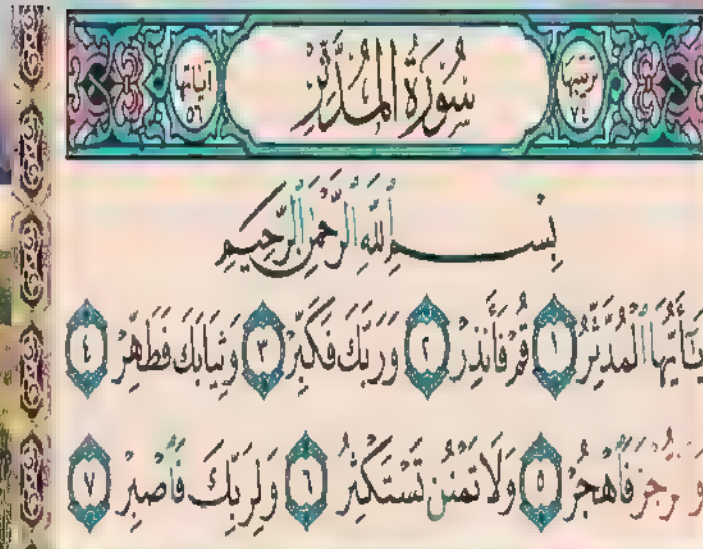 ترتيبها ٧٤ سُورَةُ المُدَّثِّرِ آياتها ٥٦
بِسْمِ ٱللَّهِ ٱلرَّحْمَٰنِ ٱلرَّحِيمِ
يَٰٓأَيُّهَا ٱلْمُدَّثِّرُ ١ قُمْ فَأَنذِرْ ٢ وَرَبَّكَ فَكَبِّرْ ٣ وَثِيَابَكَ فَطَهِّرْ ٤
فَٱهْجُرْ ٥ وَلَا تَمْنُن تَسْتَكْثِرُ ٦ وَلِرَبِّكَ فَٱصْبِرْ ٧